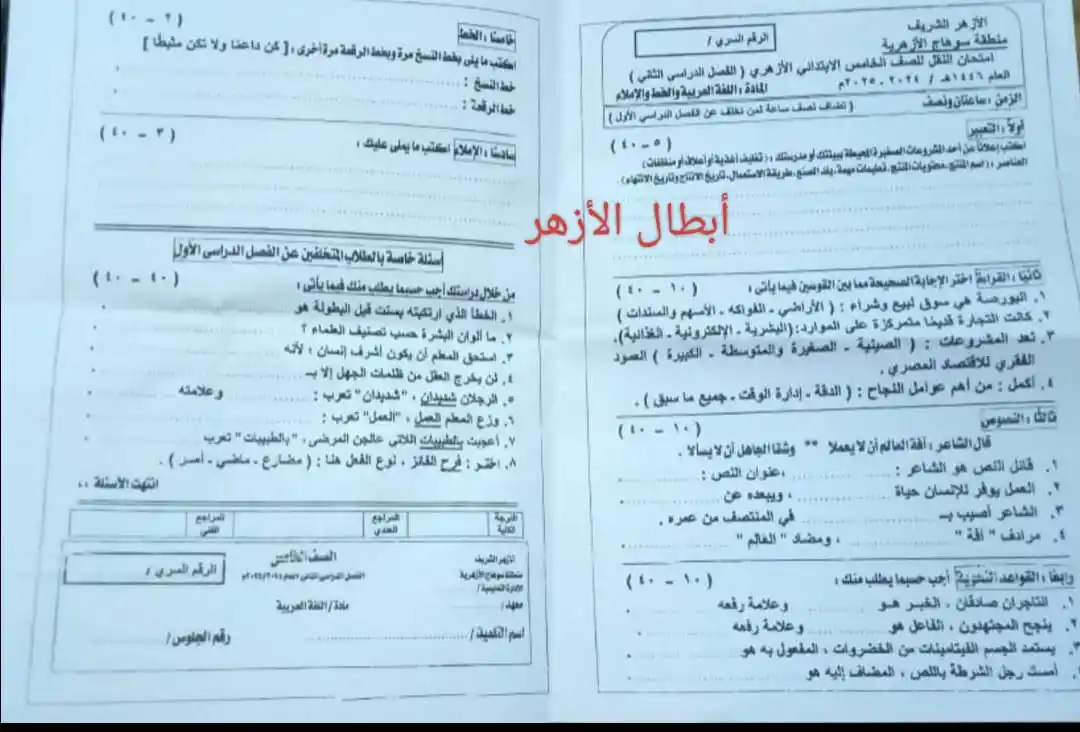 الأزهر الشريف
منطقة سوهاج الأزهرية
الرقم السري /
امتحان النقل للصف الخامس الابتدائي الأزهري ( الفصل الدراسي الثاني )
العام ١٤٤٦هـ / ٢٠٢٤ - ٢٠٢٥م المادة : اللغة العربية والخط والإملاء
الزمن : ساعتان ونصف ( تضاف نصف ساعة لمن تخلف عن الفصل الدراسي الأول )
أولاً : التعبير ( ٥ - ٤٠ )
اكتب إعلانًا عن أحد المشروعات الصغيرة المحيطة ببيئتك أو مدرستك : ( تغليف أغذية أو أعلاف أو منظفات )
العناصر : ( اسم المنتج، محتويات المنتج، تعليمات مهمة، بلد الصنع، طريقة الاستعمال، تاريخ الإنتاج وتاريخ الانتهاء) .
أبطال الأزهر
ثانيًا : القراءة اختر الإجابة الصحيحة مما بين القوسين فيما يأتي : ( ١٠ - ٤٠ )
١. البورصة هي سوق لبيع وشراء : ( الأراضي - الفواكه - الأسهم والسندات )
٢. كانت التجارة قديمًا متمركزة على الموارد : (البشرية - الإلكترونية - الغذائية).
٣. تعد المشروعات : ( الصينية - الصغيرة والمتوسطة - الكبيرة ) العمود
الفقري للاقتصاد المصري .
٤. أكمل : من أهم عوامل النجاح : ( الدقة - إدارة الوقت - جميع ما سبق ) .
ثالثًا : النصوص ( ١٠ - ٤٠ )
قال الشاعر : آفة العالم أن لا يعملا ** وشقا الجاهل أن لا يسألا .
١. قائل النص هو الشاعر : .......... ،عنوان النص : ..........
٢. العمل يوفر للإنسان حياة .......... ، ويبعده عن ..........
٣. الشاعر أصيب بـ .......... في المنتصف من عمره .
٤. مرادف " آفة " .......... ، ومضاد " العالم " ..........
رابعًا : القواعد النحوية أجب حسبما يطلب منك : ( ١٠ - ٤٠ )
١. التاجران صادقان ، الخبر هو .......... وعلامة رفعه ..........
٢. ينجح المجتهدون ، الفاعل هو .......... وعلامة رفعه ..........
٣. يستمد الجسم الفيتامينات من الخضروات ، المفعول به هو ..........
أمسك رجل الشرطة باللص ، المضاف إليه هو ..........
خامسًا : الخط ( ٢ - ٤٠ )
اكتب ما يلى بخط النسخ مرة وبخط الرقعة مرة أخرى : [ كن داعمًا ولا تكن مثبطًا ]
خط النسخ : ..........
خط الرقعة : ..........
سادسًا : الإملاء اكتب ما يملى عليك : ( ٣ - ٤٠ )
أسئلة خاصة بالطلاب المتخلفين عن الفصل الدراسي الأول
من خلال دراستك أجب حسبما يطلب منك فيما يأتي : ( ٤٠ - ٤٠ )
١. الخطأ الذي ارتكبته بسنت قبل البطولة هو ..........
٢. ما ألوان البشرة حسب تصنيف العلماء ؟ ..........
٣. استحق المعلم أن يكون أشرف إنسان ؛ لأنه ..........
٤. لن يخرج العقل من ظلمات الجهل إلا بـ ..........
٥. الرجلان شديدان ، "شديدان" تعرب : .......... وعلامته ..........
٦. وزع المعلم العمل ، "العمل" تعرب : ..........
٧. أعجبت بالطبيبات اللاتي عالجن المرضى، "بالطبيبات" تعرب ..........
٨. اختر : فرح الفائز ، نوع الفعل هنا : ( مضارع - ماضي - أمر ) .
انتهت الأسئلة ،،
الدرجة الكلية المراجع العددي المراجع الفني
الأزهر الشريف الصف الخامس الرقم السري /
منطقة سوهاج الأزهرية
الإدارة التعليمية /
معهد / مادة / اللغة العربية
اسم التلميذ / .......... رقم الجلوس /